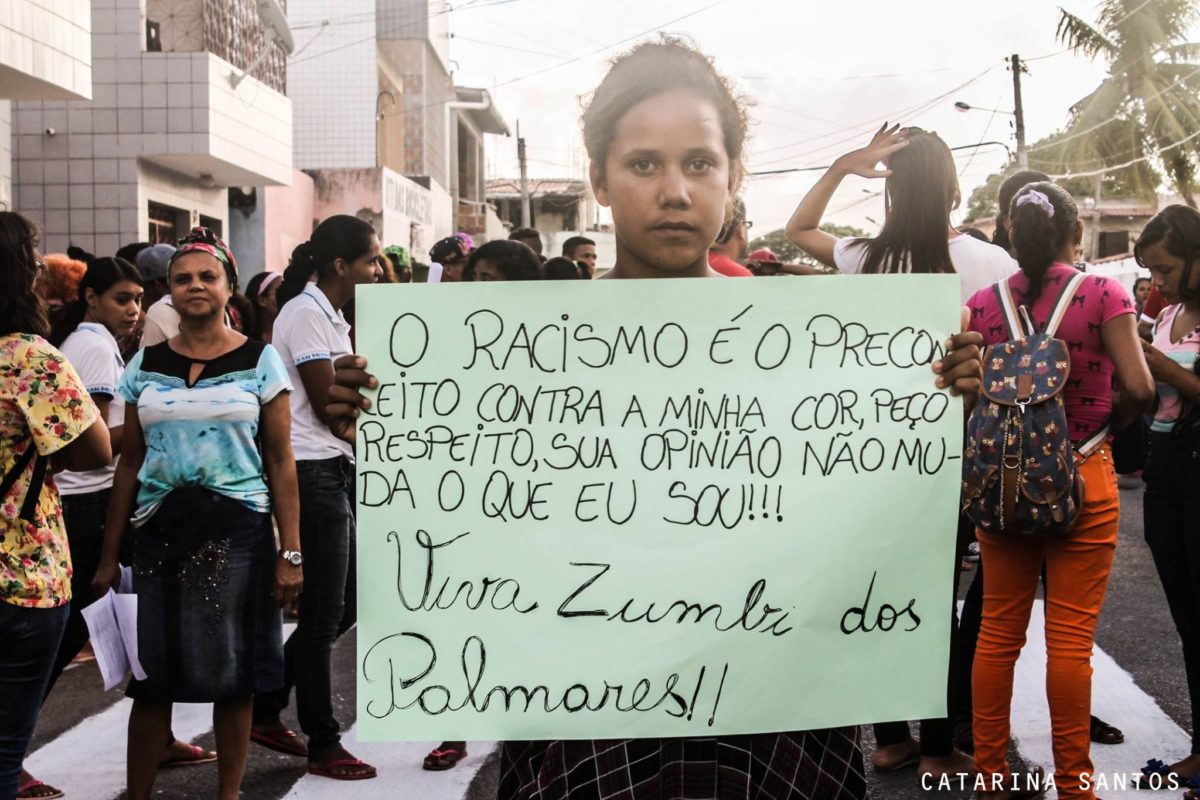 O RACISMO É O PRECON
CEITO CONTRA A MINHA COR, PEÇO
RESPEITO, SUA OPINIÃO NÃO MU-
DA O QUE EU SOU!!!
Viva Zumbi dos
Palmares!!
CATARINA SANTOS